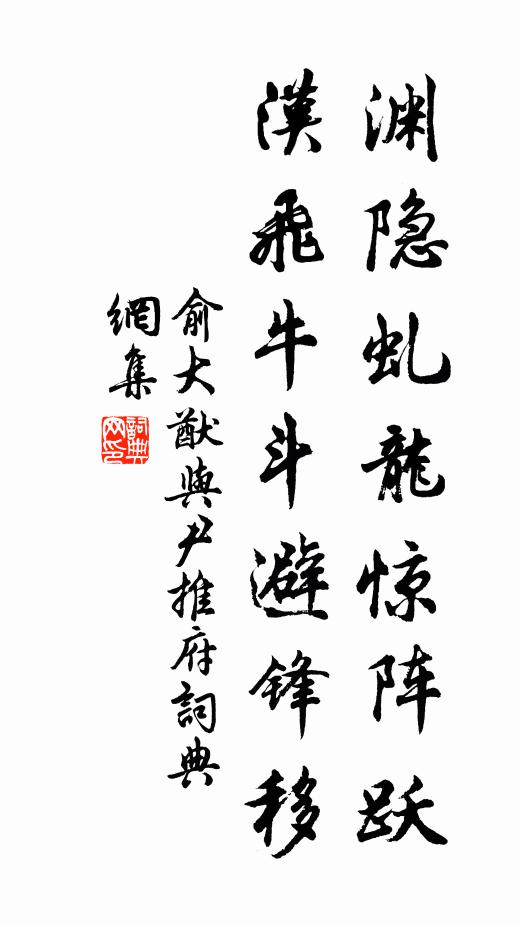 渊隐虬龍惊阵跃
漢飛牛斗避锋移
俞大猷與尹推府詞典
網集
詞典網印